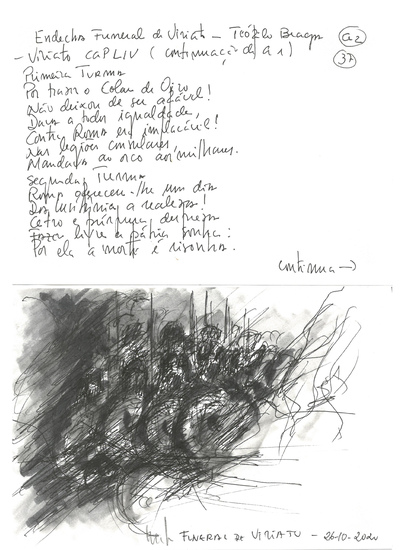 Endechas Funeral de Viriato - Teófilo Braga
G2
- Viriato CAP LIV ( continuação de G 1)
37
Primeira Turma
Por trazer o Colar de Oiro
Não deixou de ser afável!
Dava a todos igualdade,
Contra Roma era implacável!
Nas legiões consulares
Mandava ao orco aos milhares.
Segunda Turma
Roma ofereceu-lhe um dia
Da Lusitânia a realeza!
Cetro e púrpura despreza
livre a pátria sonha:
Por ela a morte é risonha.
continua →
FUNERAL DE VIRIATU - 26-10-2020